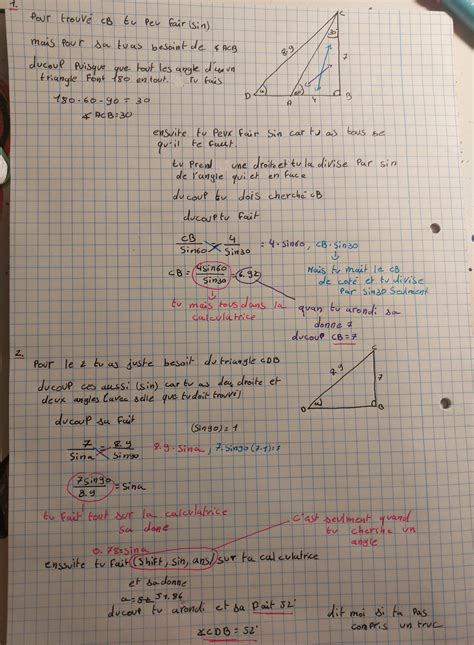 1.
Pour trouvé CB tu peu fair (sin)
mais pour sa tu as besoint de ∢ACB
ducoup puisque que tout les angle d'un
triangle font 180 en tout. Tu fais
180-60-90 = 30
∢ACB=30
C
8.9
7
D
A
B
4
60°
ensuite tu peux fair sin car tu as tous ce
qu'il te faut.
tu prend une droite et tu la divise par sin
de l'angle qui et en face
ducoup tu dois cherché CB
ducoup tu fait
CB/Sin60 = 4/Sin30 = 4·sin60, CB·Sin30
CB = 4sin60/Sin30 = 6.92
Mais tu mait le CB
de coté et tu divise
par sin30 Seulment
tu mais tous dans la
calculatrice
quan tu arondi sa
donne 7
ducoup CB=7
2.
Pour le 2 tu as juste besoit du triangle CDB
ducoup ces aussi (sin) car tu as des droite et
deux angles (avec selle que tu doit trouvé)
C
8.9
7
D
B
ducoup sa fait
(sin90)=1
7/Sina = 8.9/Sin90 8.9·sina, 7·sin90 (7·1)=7
7sin90/8.9 = Sina
tu fait tout sur la calculatrice
sa done
0.78=sina
c'est seulment quand
tu cherche un
angle
enssuite tu fait (Shift, sin, ans) sur ta calculatrice
et sa donne
a = 51.86
ducoup tu arondi et sa fait 52°
∢CDB = 52°
dit moi si ta pas
compris un truc